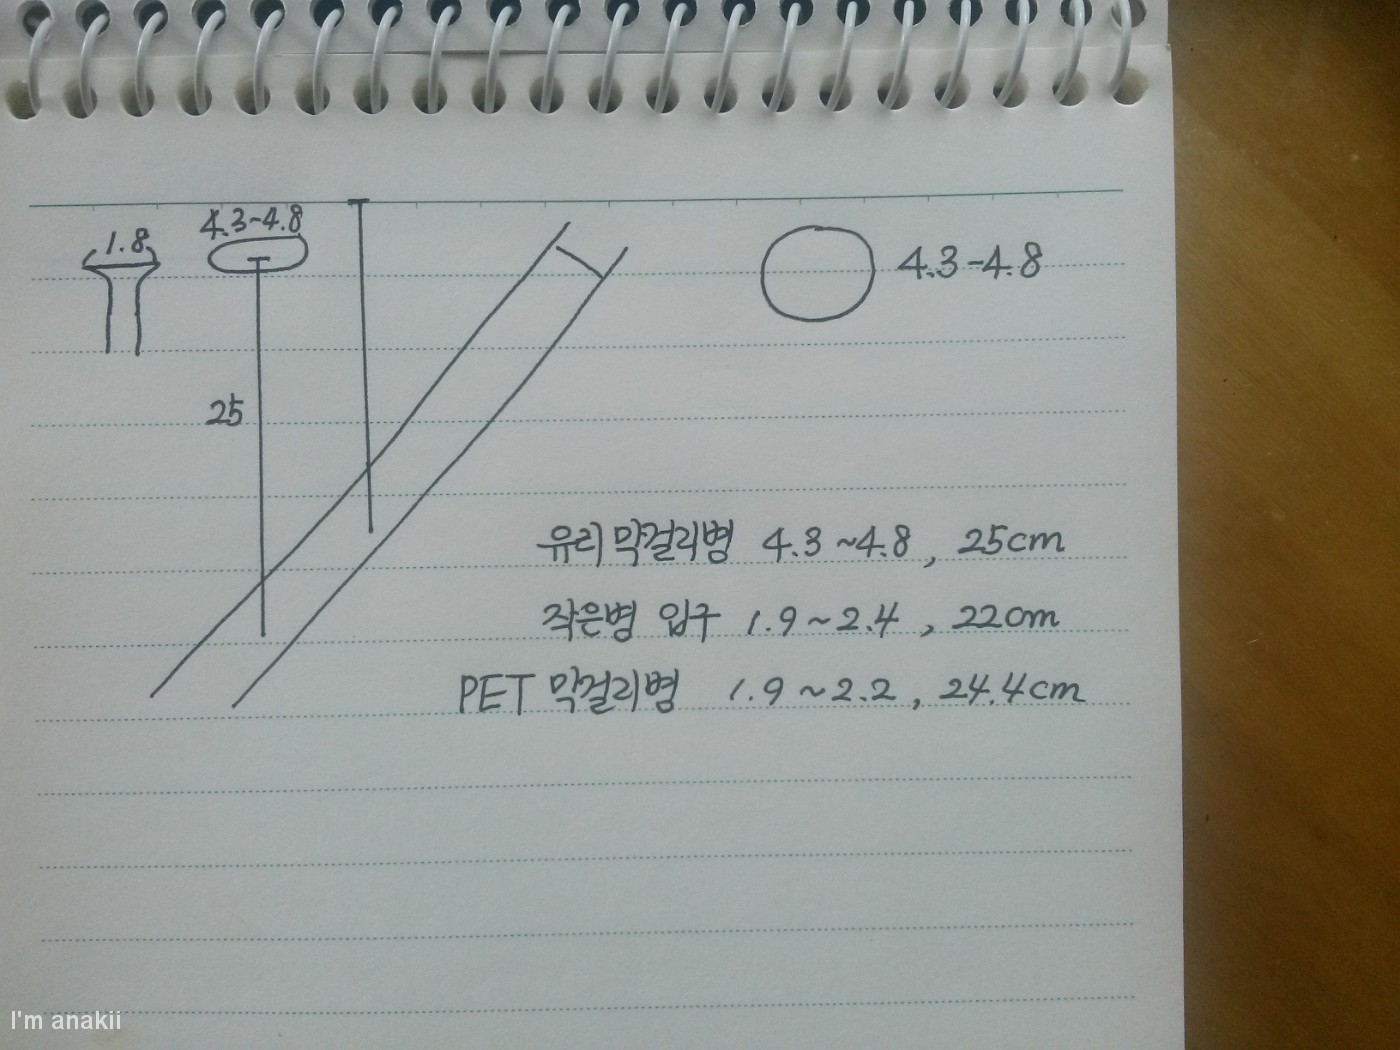 1.8
4.3-4.8
4.3-4.8
25
유리 막걸리병 4.3~4.8, 25cm
작은병 입구 1.9~2.4, 22cm
PET 막걸리병 1.9~2.2, 24.4cm
I'm anakii